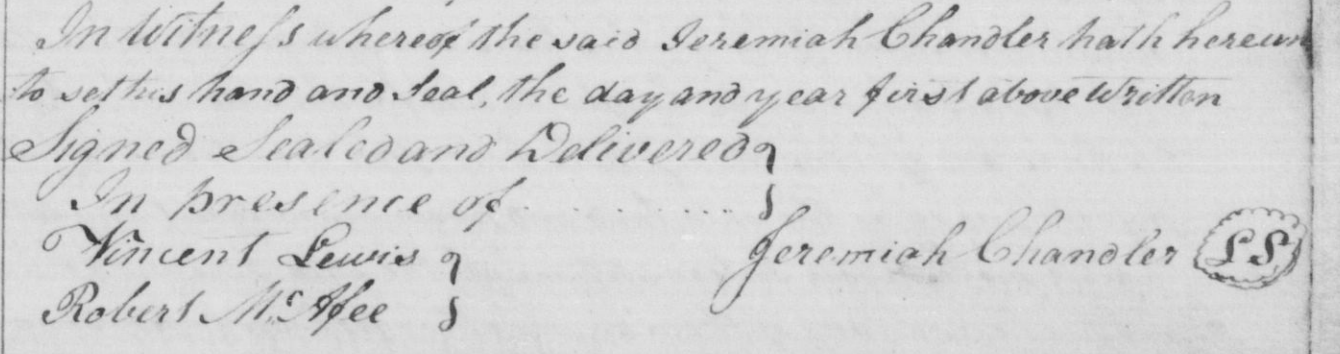 In Witness whereof the said Jeremiah Chandler hath hereun
to set his hand and Seal, the day and year first above Written
Signed Sealed and Delivered }
In presence of . . . . . . . . . . }
Vincent Lewis } Jeremiah Chandler LS
Robert McAfee }